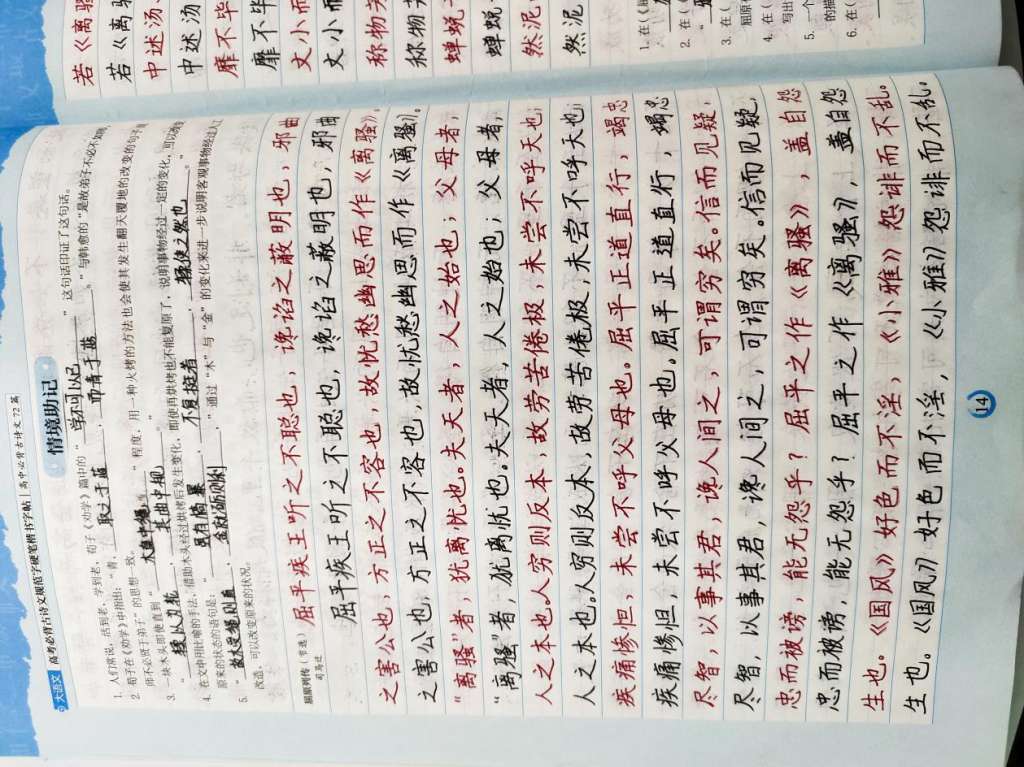 大语文 高考必背古诗文规范字硬笔楷书字帖 | 高中必背古诗文 72 篇
情境助记
1. 人们常说，活到老、学到老，荀子《劝学》篇中的“学不可以已”这句话印证了这句话。
2. 荀子在《劝学》中指出：“青，取之于蓝，而青于蓝。”与韩愈的“是故弟子不必不如师，
师不必贤于弟子”的思想一致。
3. 一块木头即使直到“木直中绳”程度，用一种火烤的方法也会使其发生翻天覆地的改变的句子是
“輮以为轮，其曲中规”
4. 在文中用比喻的手法，借助木头经过烘烤后发生变化，即使再烘烤也不能复原了，说明事物经过一定的变化，可以改变
原来的状态的语句是：“虽有槁暴，不复挺者，輮使之然也。”
5. “故木受绳则直，金就砺则利。”通过“木”与“金”的变化来进一步说明客观事物经过人工
改造，可以改变原来的状况。
屈原列传（节选）
司马迁
屈平疾王听之不聪也，谗谄之蔽明也，邪曲
屈平疾王听之不聪也，谗谄之蔽明也，邪曲
之害公也，方正之不容也，故忧愁幽思而作《离骚》。
之害公也，方正之不容也，故忧愁幽思而作《离骚》。
“离骚”者，犹离忧也。夫天者，人之始也；父母者，
“离骚”者，犹离忧也。夫天者，人之始也；父母者，
人之本也。人穷则反本，故劳苦倦极，未尝不呼天也；
人之本也。人穷则反本，故劳苦倦极，未尝不呼天也；
疾痛惨怛，未尝不呼父母也。屈平正道直行，竭忠
疾痛惨怛，未尝不呼父母也。屈平正道直行，竭忠
尽智，以事其君，谗人间之，可谓穷矣。信而见疑，
尽智，以事其君，谗人间之，可谓穷矣。信而见疑，
忠而被谤，能无怨乎？屈平之作《离骚》，盖自怨
忠而被谤，能无怨乎？屈平之作《离骚》，盖自怨
生也。《国风》好色而不淫，《小雅》怨诽而不乱。
生也。《国风》好色而不淫，《小雅》怨诽而不乱。
14
若《离骚
若《离骚
中述汤、
中述汤、
靡不毕
靡不毕
文小而
文小而
称物芳
称物芳
蝉蜕
蝉蜕
然泥
然泥
1. 在《
2. 在
3. 在（
4. 在（
写出
5. 一个
的描
6. 在（